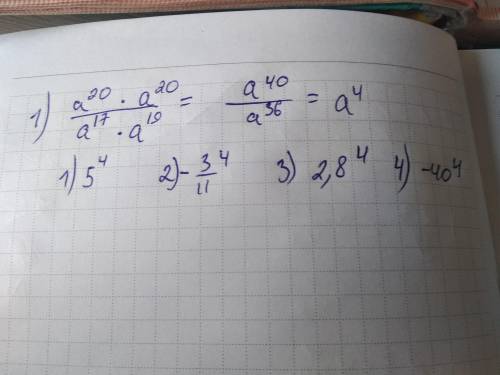 1) a²⁰ · a²⁰ / a¹⁷ · a¹⁹ = a⁴⁰ / a³⁶ = a⁴
1) 5⁴ 2) - 3/11 ⁴ 3) 2,8⁴ 4) -40⁴